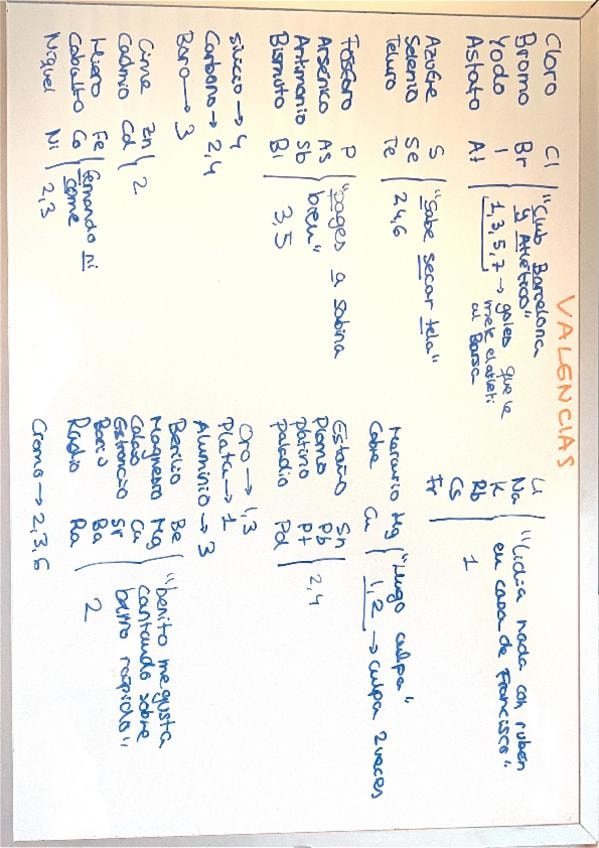 VALENCIAS
Cloro Cl "Club Barcelona
Bromo Br y Atlético"
Yodo I 1,3,5,7 → goles que le
Astato At mete el atleti
al Barsa
Azufre S "Sabe secar tela"
Selenio Se 2,4,6
Teluro Te
Fósforo P "pages a sabina
Arsénico As bien"
Antimonio Sb 3,5
Bismuto Bi
silicio → 4
Carbono → 2,4
Boro → 3
Cinc Zn 2
Cadmio Cd
Hierro Fe fernando ni
Cobalto Co come
Niquel Ni 2,3
Li "Lidia nada con ruben
Na en casa de Francisco"
K 1
Rb
Cs
Fr
Mercurio Hg "Hugo culpa"
Cobre Cu 1,2 → culpa 2 veces
Estaño Sn 2,4
Plomo Pb
platino Pt
paladio Pd
Oro → 1,3
Plata → 1
Aluminio → 3
Berilio Be "benito me gusta
Magnesio Mg cantando sobre
Calcio Ca barro rápido"
Estroncio Sr 2
Bario Ba
Radio Ra
Cromo → 2,3,6